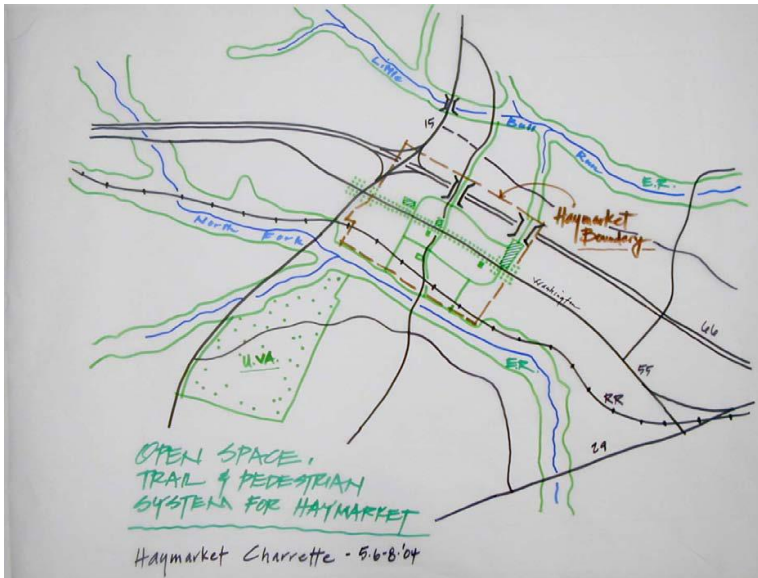 Little
Bull
Run
E.R.
15
Haymarket
Boundary
North Fork
Washington
66
55
E.R.
RR
29
U.VA.
OPEN SPACE,
TRAIL & PEDESTRIAN
SYSTEM FOR HAYMARKET
Haymarket Charrette - 5.6-8.'04